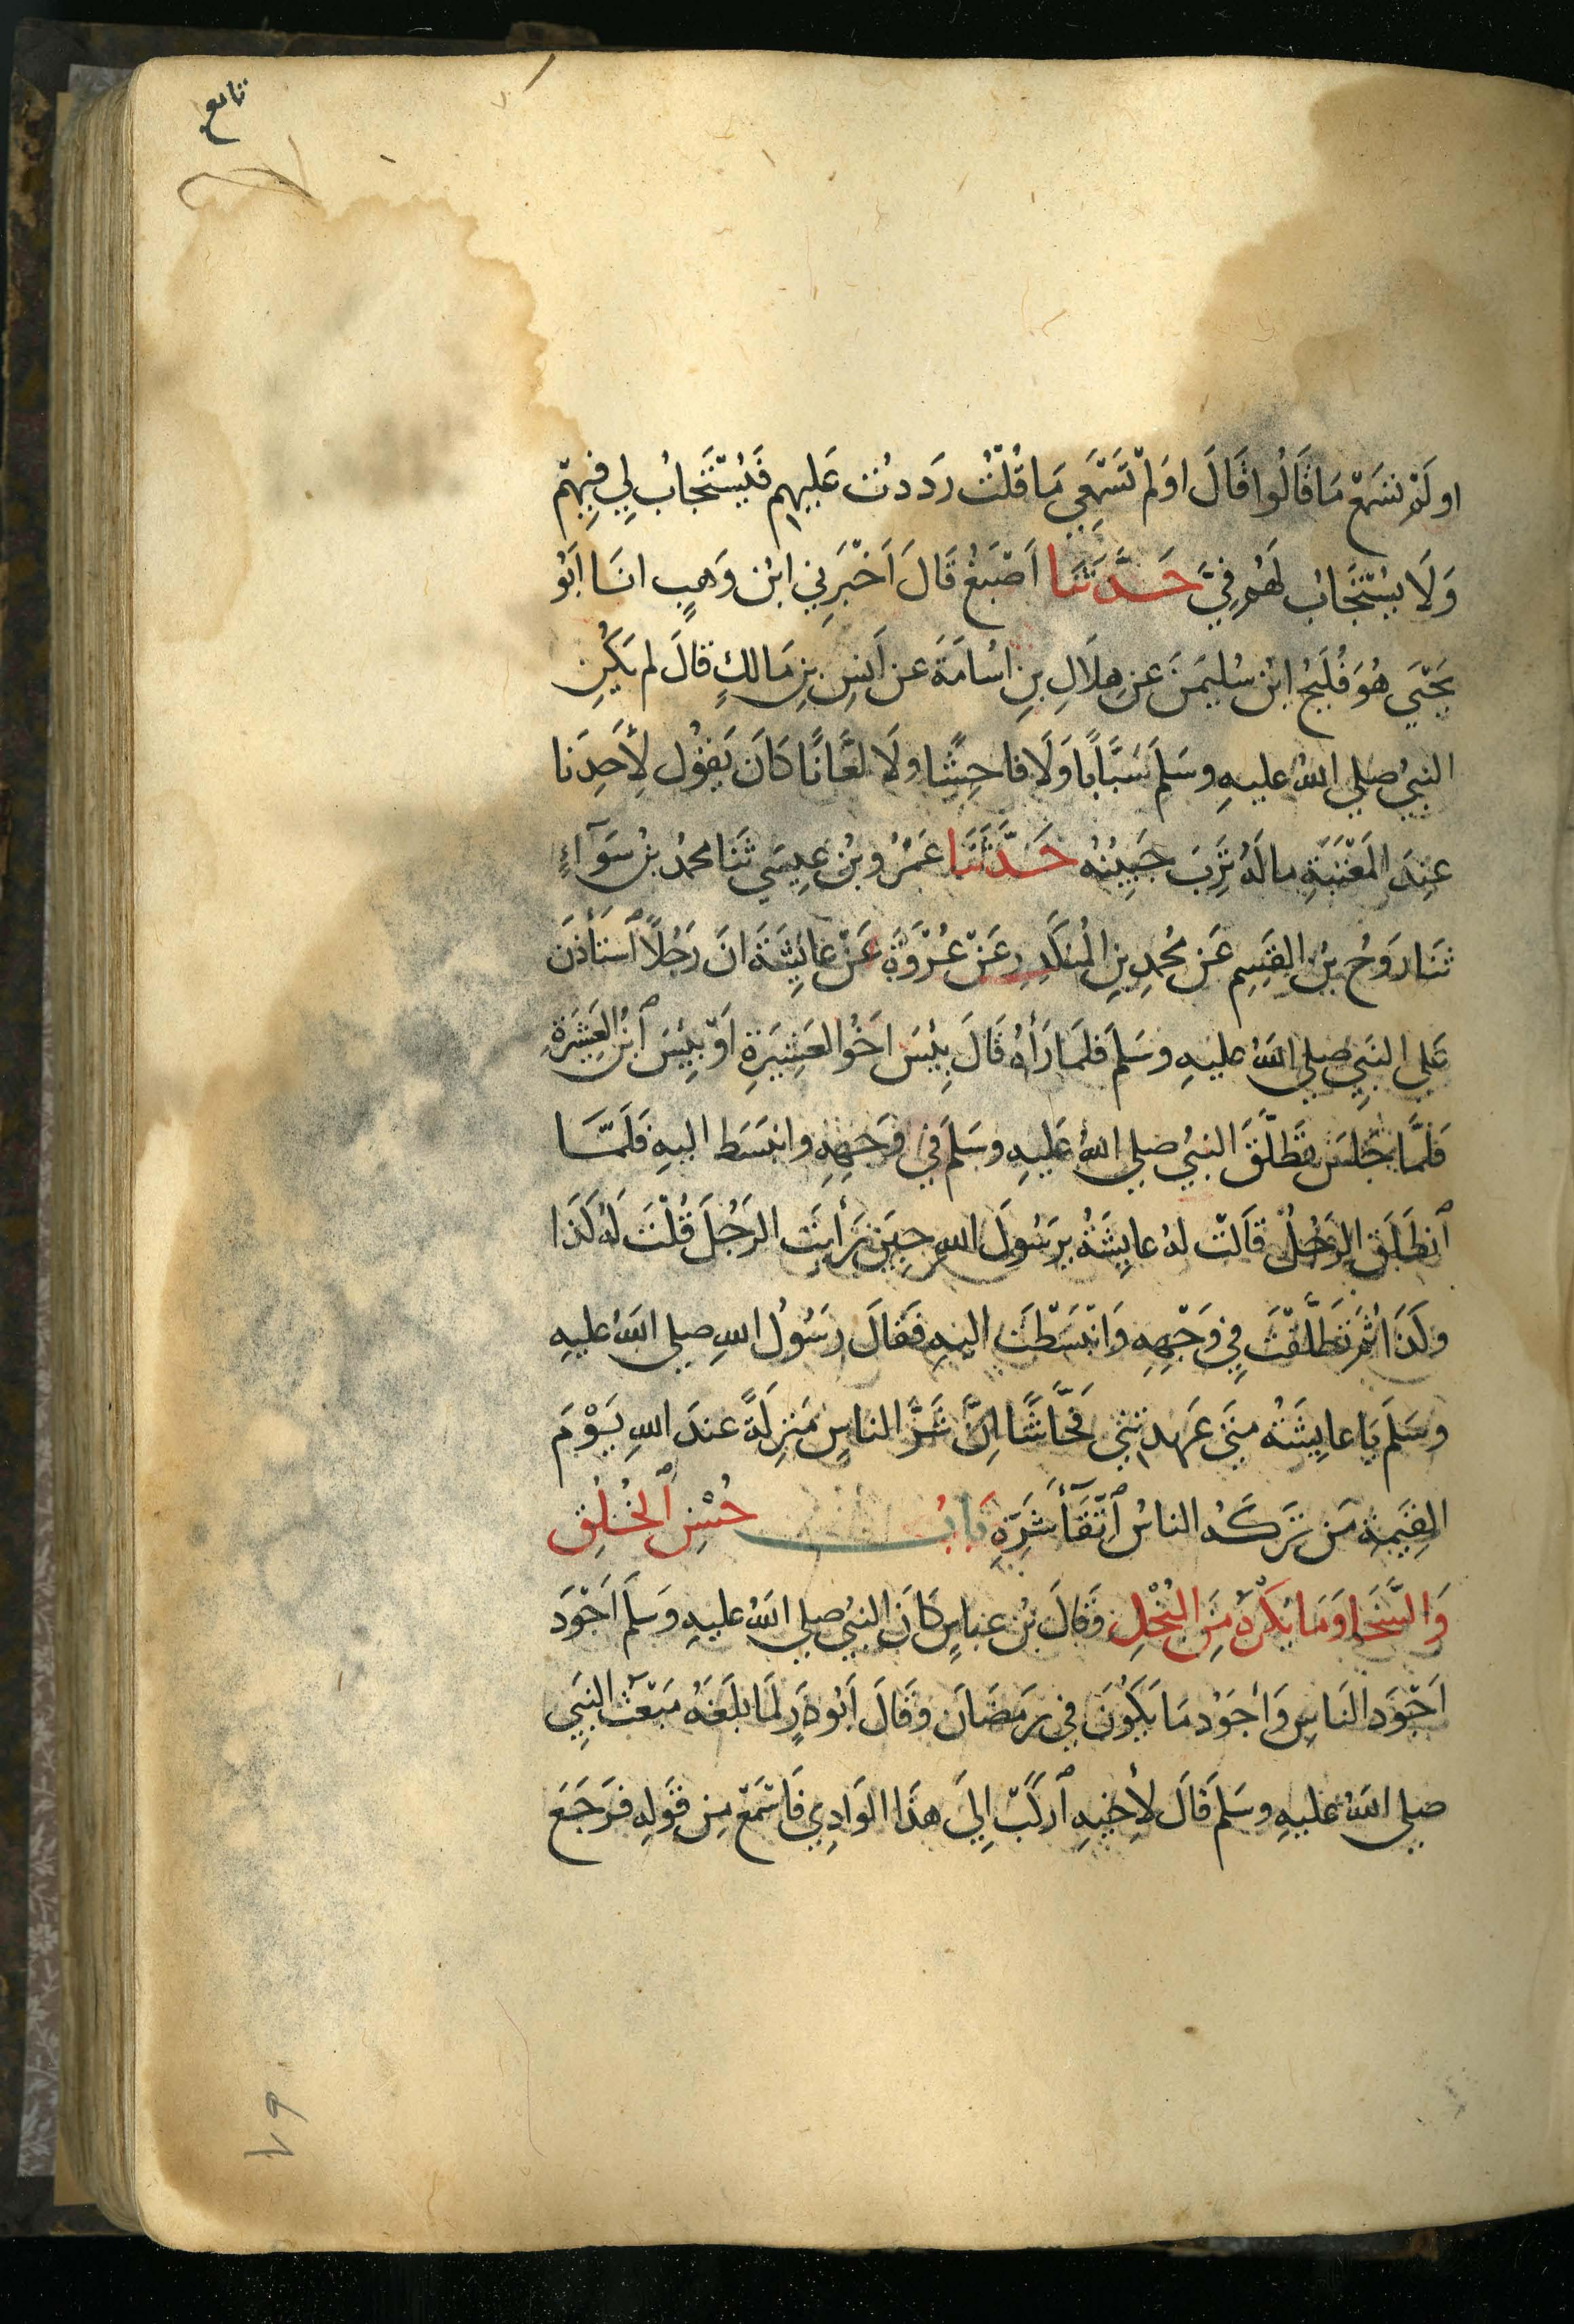 تابع
او لَمْ تسْمَعْ مَا قَالُوا قَالَ اوَلَمْ تَسْمَعِي مَا قُلْتُ رَدَدتُ عَلَيهِم فَيُسْتَجَابُ لِي فِيهِمْ
وَلَا يُسْتَجَابُ لَهُمْ فِيَّ حَدَّثَنَا اَصْبَغُ قَالَ اَخْبَرَنِي ابْن وَهبٍ انَا اَبُو
يَحْيَي هُوَ فُلَيحُ ابْن سُليمَن عَن هِلَالِ بنِ اسُامَةَ عن اَنَسِ بنِ مَالكٍ قالَ لم يَكُنِ
النبيُ صلي اللهُ عليهِ وسَلَمَ سَبَّابًا وَلَا فاحِشًا ولَا لعَّانًا كَانَ يَقُول لِأَحَدِنَا
عِندَ المَعْتَبَةِ مالَهُ تَرِبَ جَبِينُهُ حَدَّثَنَا عَمْرُو بْنُ عِيسَي ثَنَا محمدُ بْنُ سَوَآءٍ
ثنَا رَوْحُ بْنُ القَسِمِ عَن مُحمدِ بنِ المُنكَدِرِ عَنْ عُرْوَةَ عَنْ عَايِشَةَ انَّ رَجُلًا ٱستَأذَنَ
عَلى النبَيِ صلي اللهُ عليهِ وسَلمَ فلَمَا رَأهُ قَالَ بِيْسَ اخَوُ العَشِيرَةِ اَوْ بِيْسَ ٱبنُ العَشِيْرَةِ
فَلَمَّا جَلسَ تَطَلَّقَ النبيُ صلي اللهُ عَليهِ وسَلَمَ في وَجْهِهِ وانبَسَطَ اليهِ فَلَمَّا
ٱنطَلَقَ الرجُلُ قَالَتْ لهُ عايِشَةُ يرَسُولَ اللهِ حِينَ رَأيتَ الرَجُلَ قُلْتَ لَهُ كَذَا
وكَذَا ثُمَّ تَطَلَّقْتَ فِي وَجْهِهِ وَانْبَسَطْتَ اليهِ فقَالَ رَسُولُ اللهِ صلي اللهُ عليهِ
وسَلَمَ يَا عايِشَةُ متَي عَهِدتِنِي فَحَّاشًا اِنَّ شَرَّ الناسِ مَنزِلَةً عندَ اللهِ يَوْمَ
القِيَمةِ مَن تَرَكَهُ الناسُ ٱتِّقَآءَ شَرِّهِ بَابُ حُسْنِ ٱلخُلُقِ
وَالسَّخَا وَمَا يُكْرَهُ مِنَ البُخْلِ وَقَالَ بْن عباسٍ كَانَ النبيُ صلي اللهُ عليهِ وسَلَمَ اَجْوَد
اَجْوَدَ النَاسِ وَأجوَدُ مَا يَكُونَ في رَمَضَانَ وَقَالَ اَبُو ذَرٍ لمَا بلَغَهُ مَبْعَثُ النبِيِ
صلي اللهُ عليهِ وسَلمَ قَالَ لأخِيهِ ٱركَبْ اِليَ هَذَا الوَادِي فَاسْمَعْ مِن قَولِهِ فرَجَعَ
٦٩